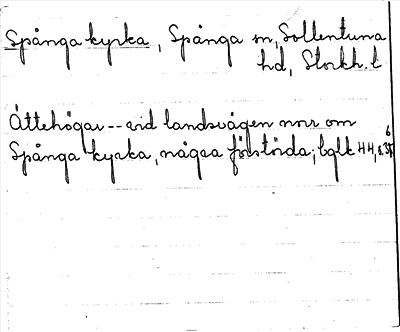 Spånga kyrka, Spånga sn, Sollentuna
hd, Stockh. l
Ättehögar -- vid landsvägen norr om
Spånga kyrka, några förstörda; bglk 44, s. 6